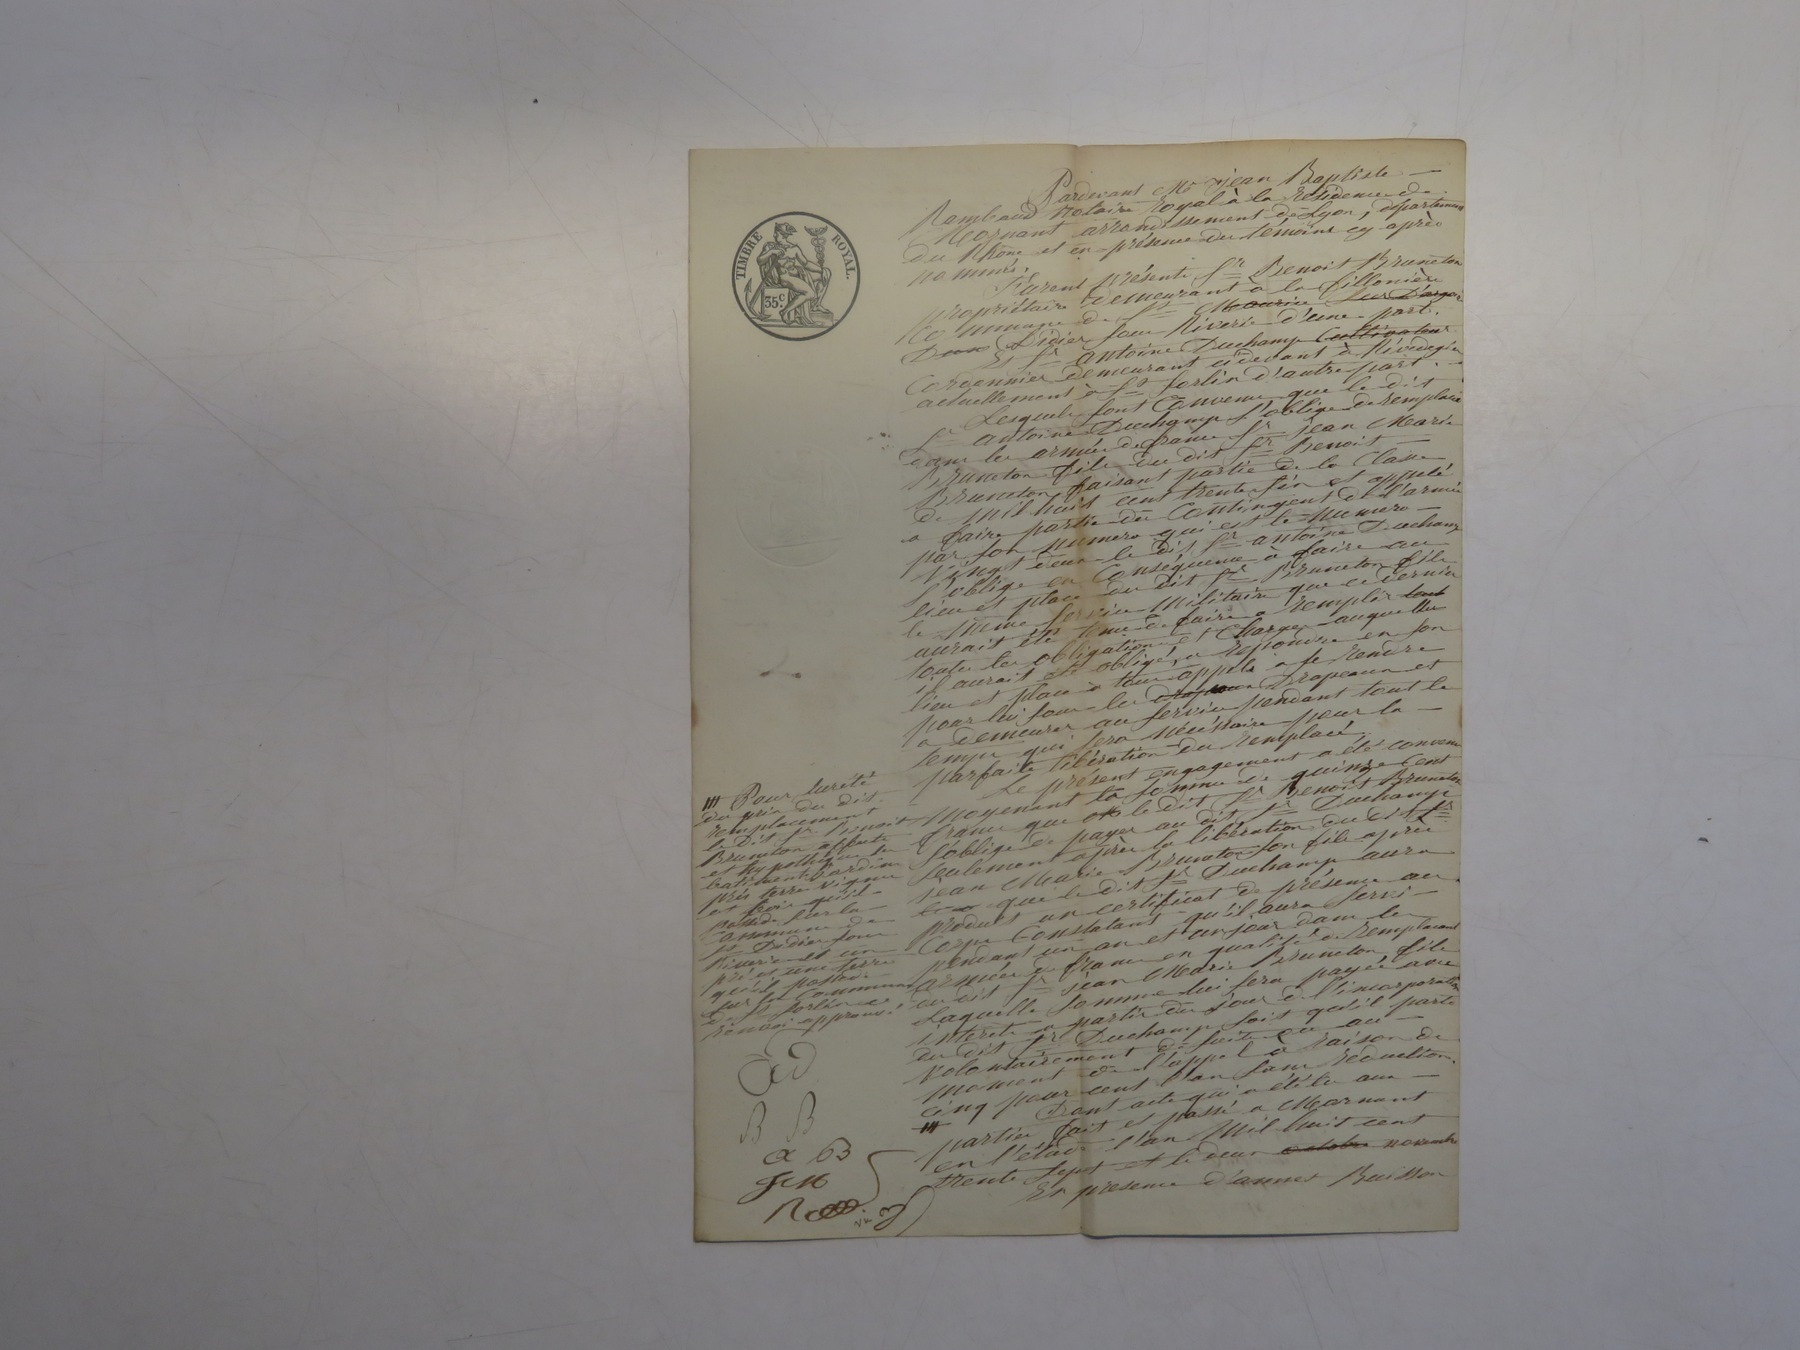 TIMBRE ROYAL.
35.c
Pardevant Me jean Baptiste —
Rambaud Notaire Royal à la Résidence de
Mornant arrondissement de Lyon, département
du Rhône et en présence des témoins cy après
nommés.
Furent présents Sr Benoit Bruneton
propriétaire demeurant à la fillonière
Commune de St
Didier Sous Riverie d'une part.
Et Sr antoine Duchamp Cultivateur
Cordonnier demeurant cidevant à Rivedegier
actuellement à St Sorlin d'autre part. —
Lesquels sont Convenus que le dit
Sr antoine Duchamp s'oblige de remplacer
dans les armées de france Sr jean Marie
Bruneton fils du dit Sr Benoit —
Bruneton faisant partie de la Classe
de Mil huit cent trente six et appelé
a faire partie du Contingent de l'armée
par son Numero qui est le Numero —
Vingt deux le dit Sr antoine Duchamp
s'oblige en Conséquence à faire au
lieu et place du dit Sr Bruneton fils
le même Service Militaire que ce dernier
aurait été tenu de faire a remplir tout
toutes les obligations et Charges auquelles
il aurait été obligé, a répondre en son
lieu et place a tous appels a se rendre
pour lui sous les Drapeaux et
a demeurer au service pendant tout le
temps qui sera Nécéssaire pour la —
parfaite libération du remplacé.
Le présent engagement a été convenu
Moyenant la somme de quinze Cent
francs que le dit Sr Benoit Bruneton
s'oblige de payer au dit Sr Duchamp
Seulement après la libération du dit Sr
jean Marie Bruneton son fils après
que le dit Sr Duchamp aura
produit un certificat de présence au
Corps Constatant qu'il aura Servi —
pendant un an et un jour dans les
armées de france en qualité de Remplacant
du dit Sr jean Marie Bruneton fils
Laquelle Somme lui sera payée avec
intérets a partir du jour de l'incorporation
du dit Sr Duchamp soit qu'il parte
Volontairement de suite ou au —
moment de l'appel à raison de
cinq pour cent l'an Sans réduction.
Dont acte qui a été lu aux —
parties fait et passé a Mornant
en l'étude l'an Mil huit cent
trente Sept et le deux octobre novembre
En presence d'annet Buisson
Pour sureté
du prix du dit
remplacement
le Dit Sr Benoit
Bruneton affecte
et hypothèque les
batiments jardin
prés terre vigne
et bois qu'il
possède sur la —
Commune de
St Didier sous
Riverie et un
pré et une terre
qu'il possède
sur la Commune
de St Sorlin
renvoi approuvé
B B
a B